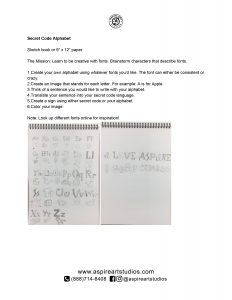 Secret Code Alphabet
Sketch book or 9" x 12" paper
The Mission: Learn to be creative with fonts. Brainstorm characters that describe fonts.
1.Create your own alphabet using whatever fonts you'd like. The font can either be consistent or
crazy.
2.Create an image that stands for each letter. For example: A is for Apple
3.Think of a sentence you would like to write with your alphabet.
4.Translate your sentence into your secret code language.
5.Create a sign using either secret code or your alphabet.
6.Color your image
Note: Look up different fonts online for inspiration!
I LOVE ASPIRE
www.aspireartstudios.com
(888)714-8408 @aspireartstudios